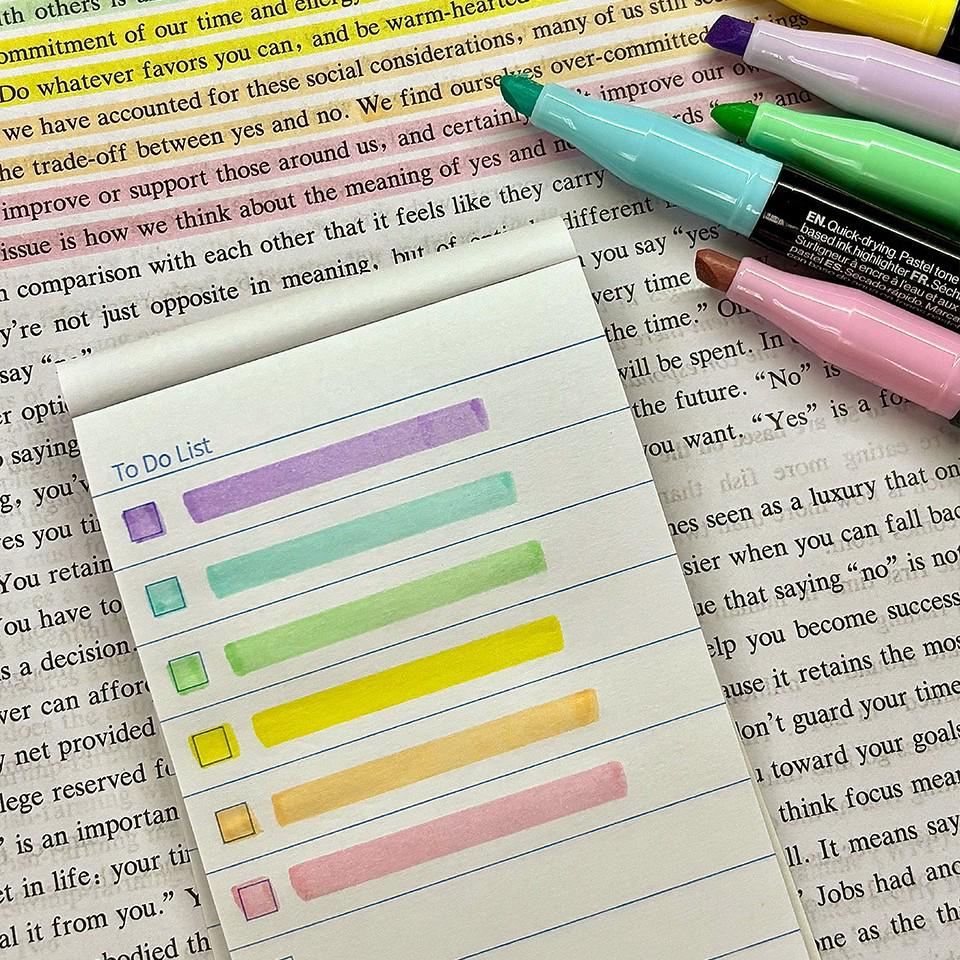 ith others is
ommitment of our time and energy
Do whatever favors you can, and be warm-hearted
we have accounted for these social considerations, many of us still
he trade-off between yes and no. We find ourselves over-committed
improve or support those around us, and certainly improve our
issue is how we think about the meaning of yes and and
n comparison with each other that it feels like they carry different
y’re not just opposite in meaning, but of you say “yes”
say “no” very time
the time.”
er will be spent. In
saying the future. “No” is
g, you’ you want. “Yes” is a
es you seen as a luxury that
You retain sier when you can fall
ou have to ue that saying “no” is not
s a decision. elp you become success
ver can affor ause it retains the mos
y net provided on’t guard your time
lege reserved toward your goals
’ is an importan think focus mean
et in life: your ll. It means say
al it from you.” ’ Jobs had
bodied th ne as the
To Do List
EN. Quick-drying. Pastel tone
based ink highlighter FR. Séch
Surligneur à encre à l’eau et aux
pastel ES. Secado rápido. Marca